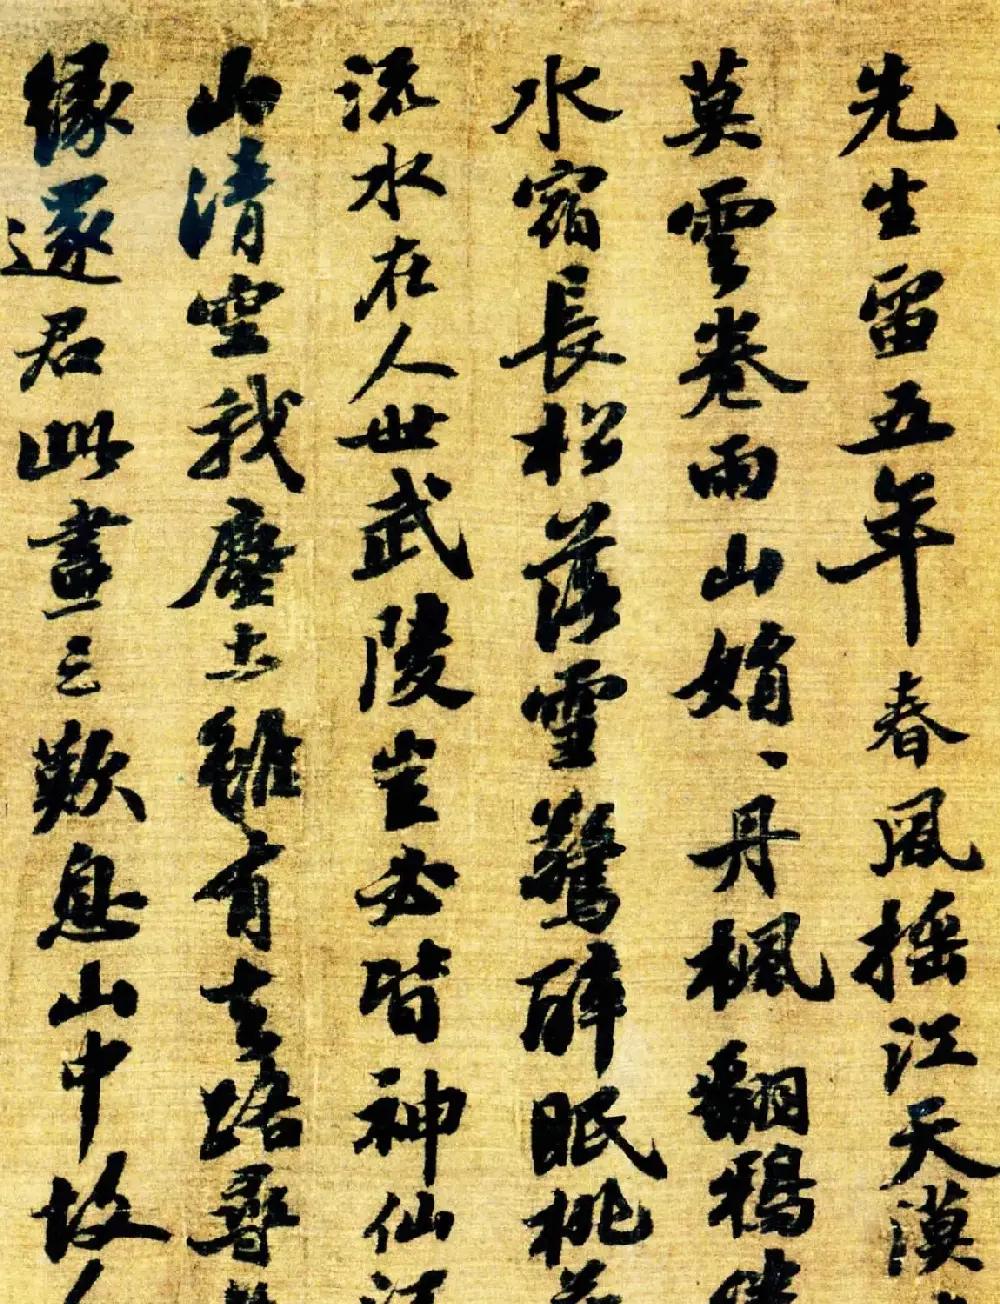 先生留五年春風摇江天漠
莫雲卷雨山娟、丹楓翻鴉伴
水宿長松落雪驚醉眠桃花
流水在人世武陵豈必皆神仙江
山清空我塵土雖有去路尋
緣還君此畫三歎息山中故人